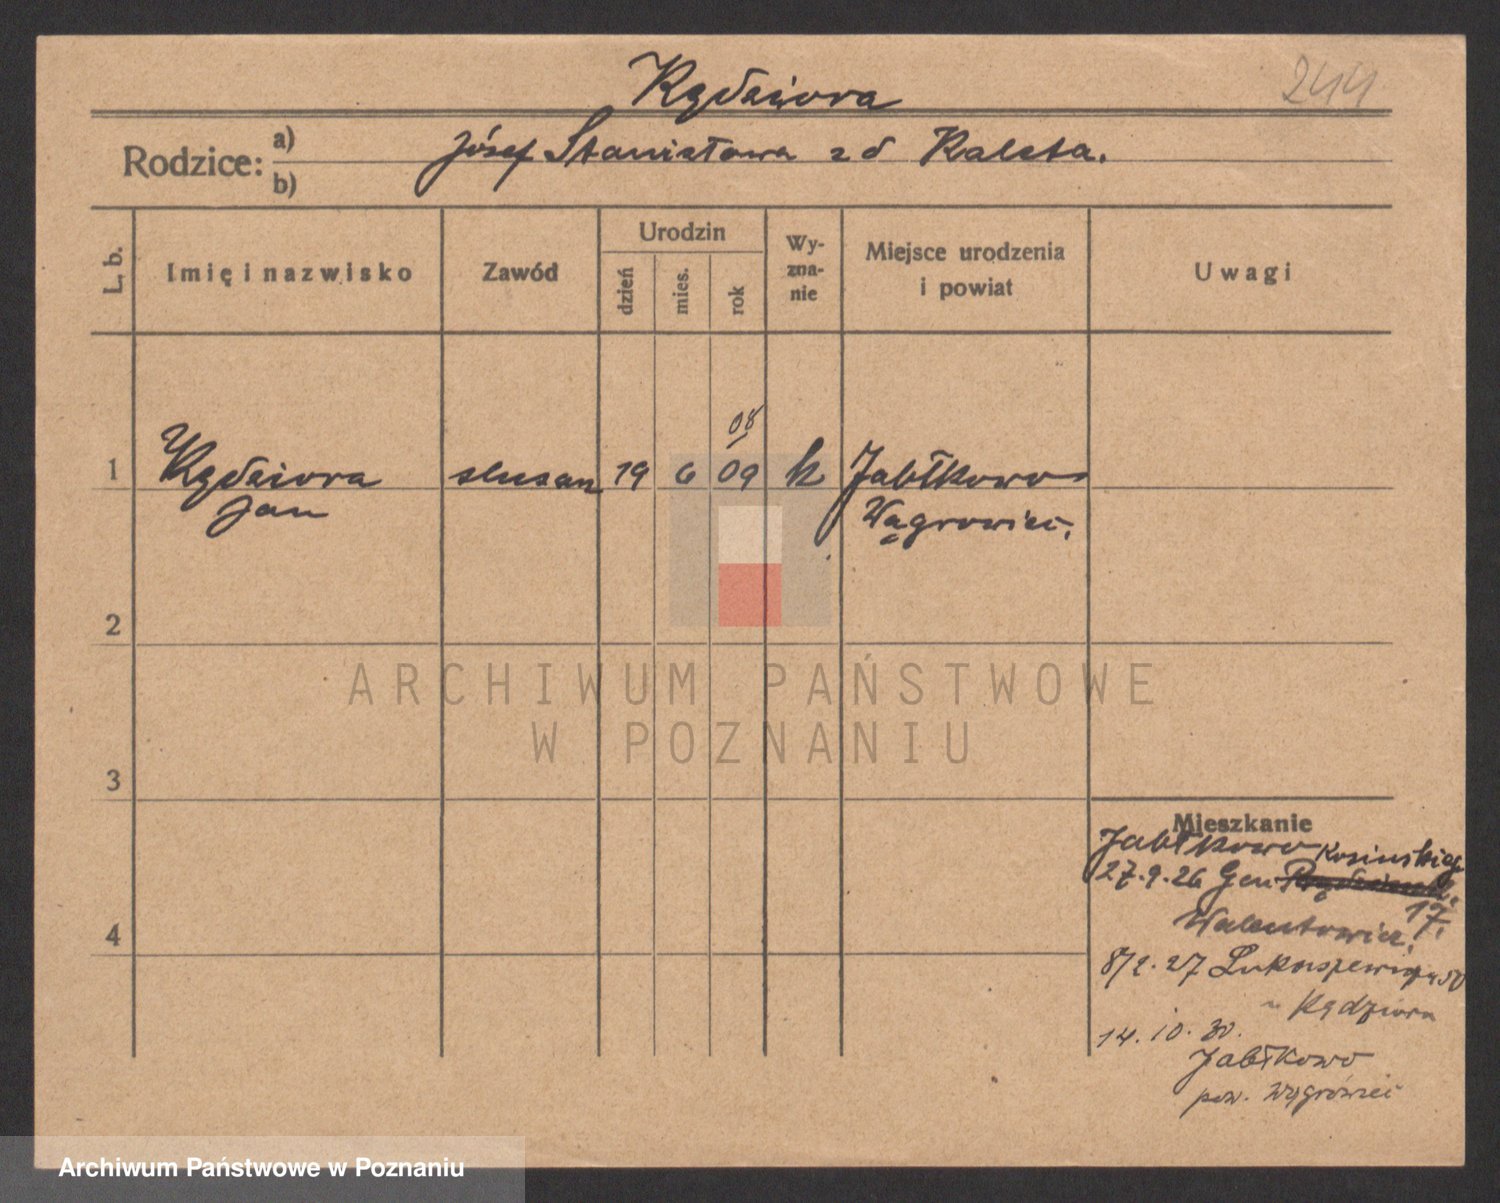 Kędziora
244
Rodzice: a) b)
Józef Stanisława z d Kaleta.
L. b.
Imię i nazwisko
Zawód
Urodzin
dzień
mies.
rok
Wy-
zna-
nie
Miejsce urodzenia
i powiat
Uwagi
08
1 Kędziora ślusarz 19 6 09 k Jabłkowo
Jan Wągrowiec.
2
3
4
ARCHIWUM PAŃSTWOWE
W POZNANIU
Mieszkanie
Jabłkowo
27.9.26 Gen. Kosińskieg
17.
Walentowicz.
8/2.27 Łukaszewicza 50
Kędziora
14.10.30.
Jabłkowo
pow. Wągrówiec
Archiwum Państwowe w Poznaniu